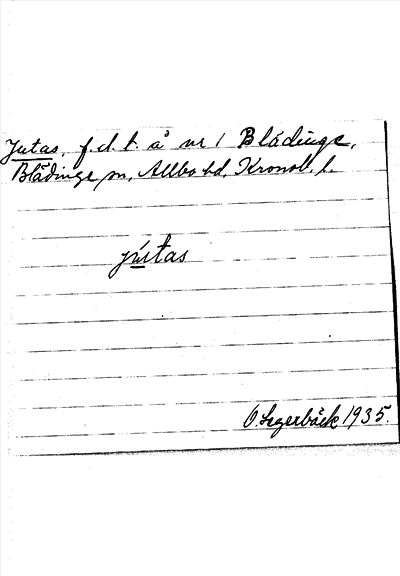 Jutas, f.d.t. å nr 1 Blädinge,
Blädinge sn, Allbo hd, Kronob. l.
jútas
O. Segerbäck 1935.